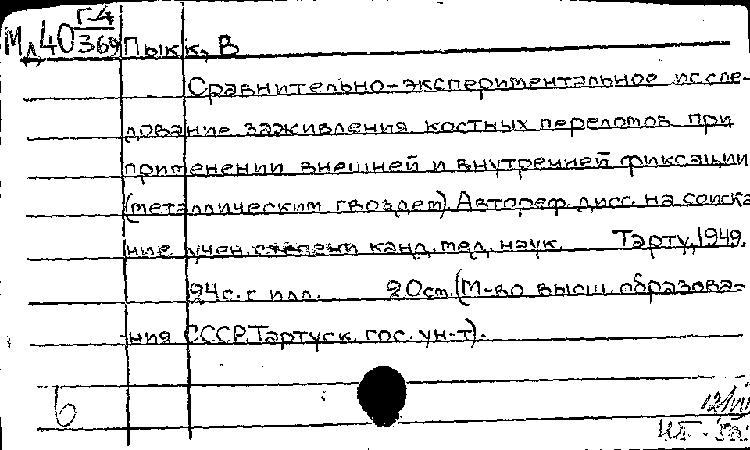 Мл40 Г-4/369 Пыкк, В
Сравнительно-экспериментальное иссле-
дование заживления костных переломов при
применении внешней и внутренней фиксации
(металлическим гвоздем). Автореф. дисс. на соиска
ние учен. степени канд. мед. наук. Тарту, 1949.
24с. с илл. 20см. (М-во высш. образова-
ния СССР. Тартуск. гос. ун-т).
6